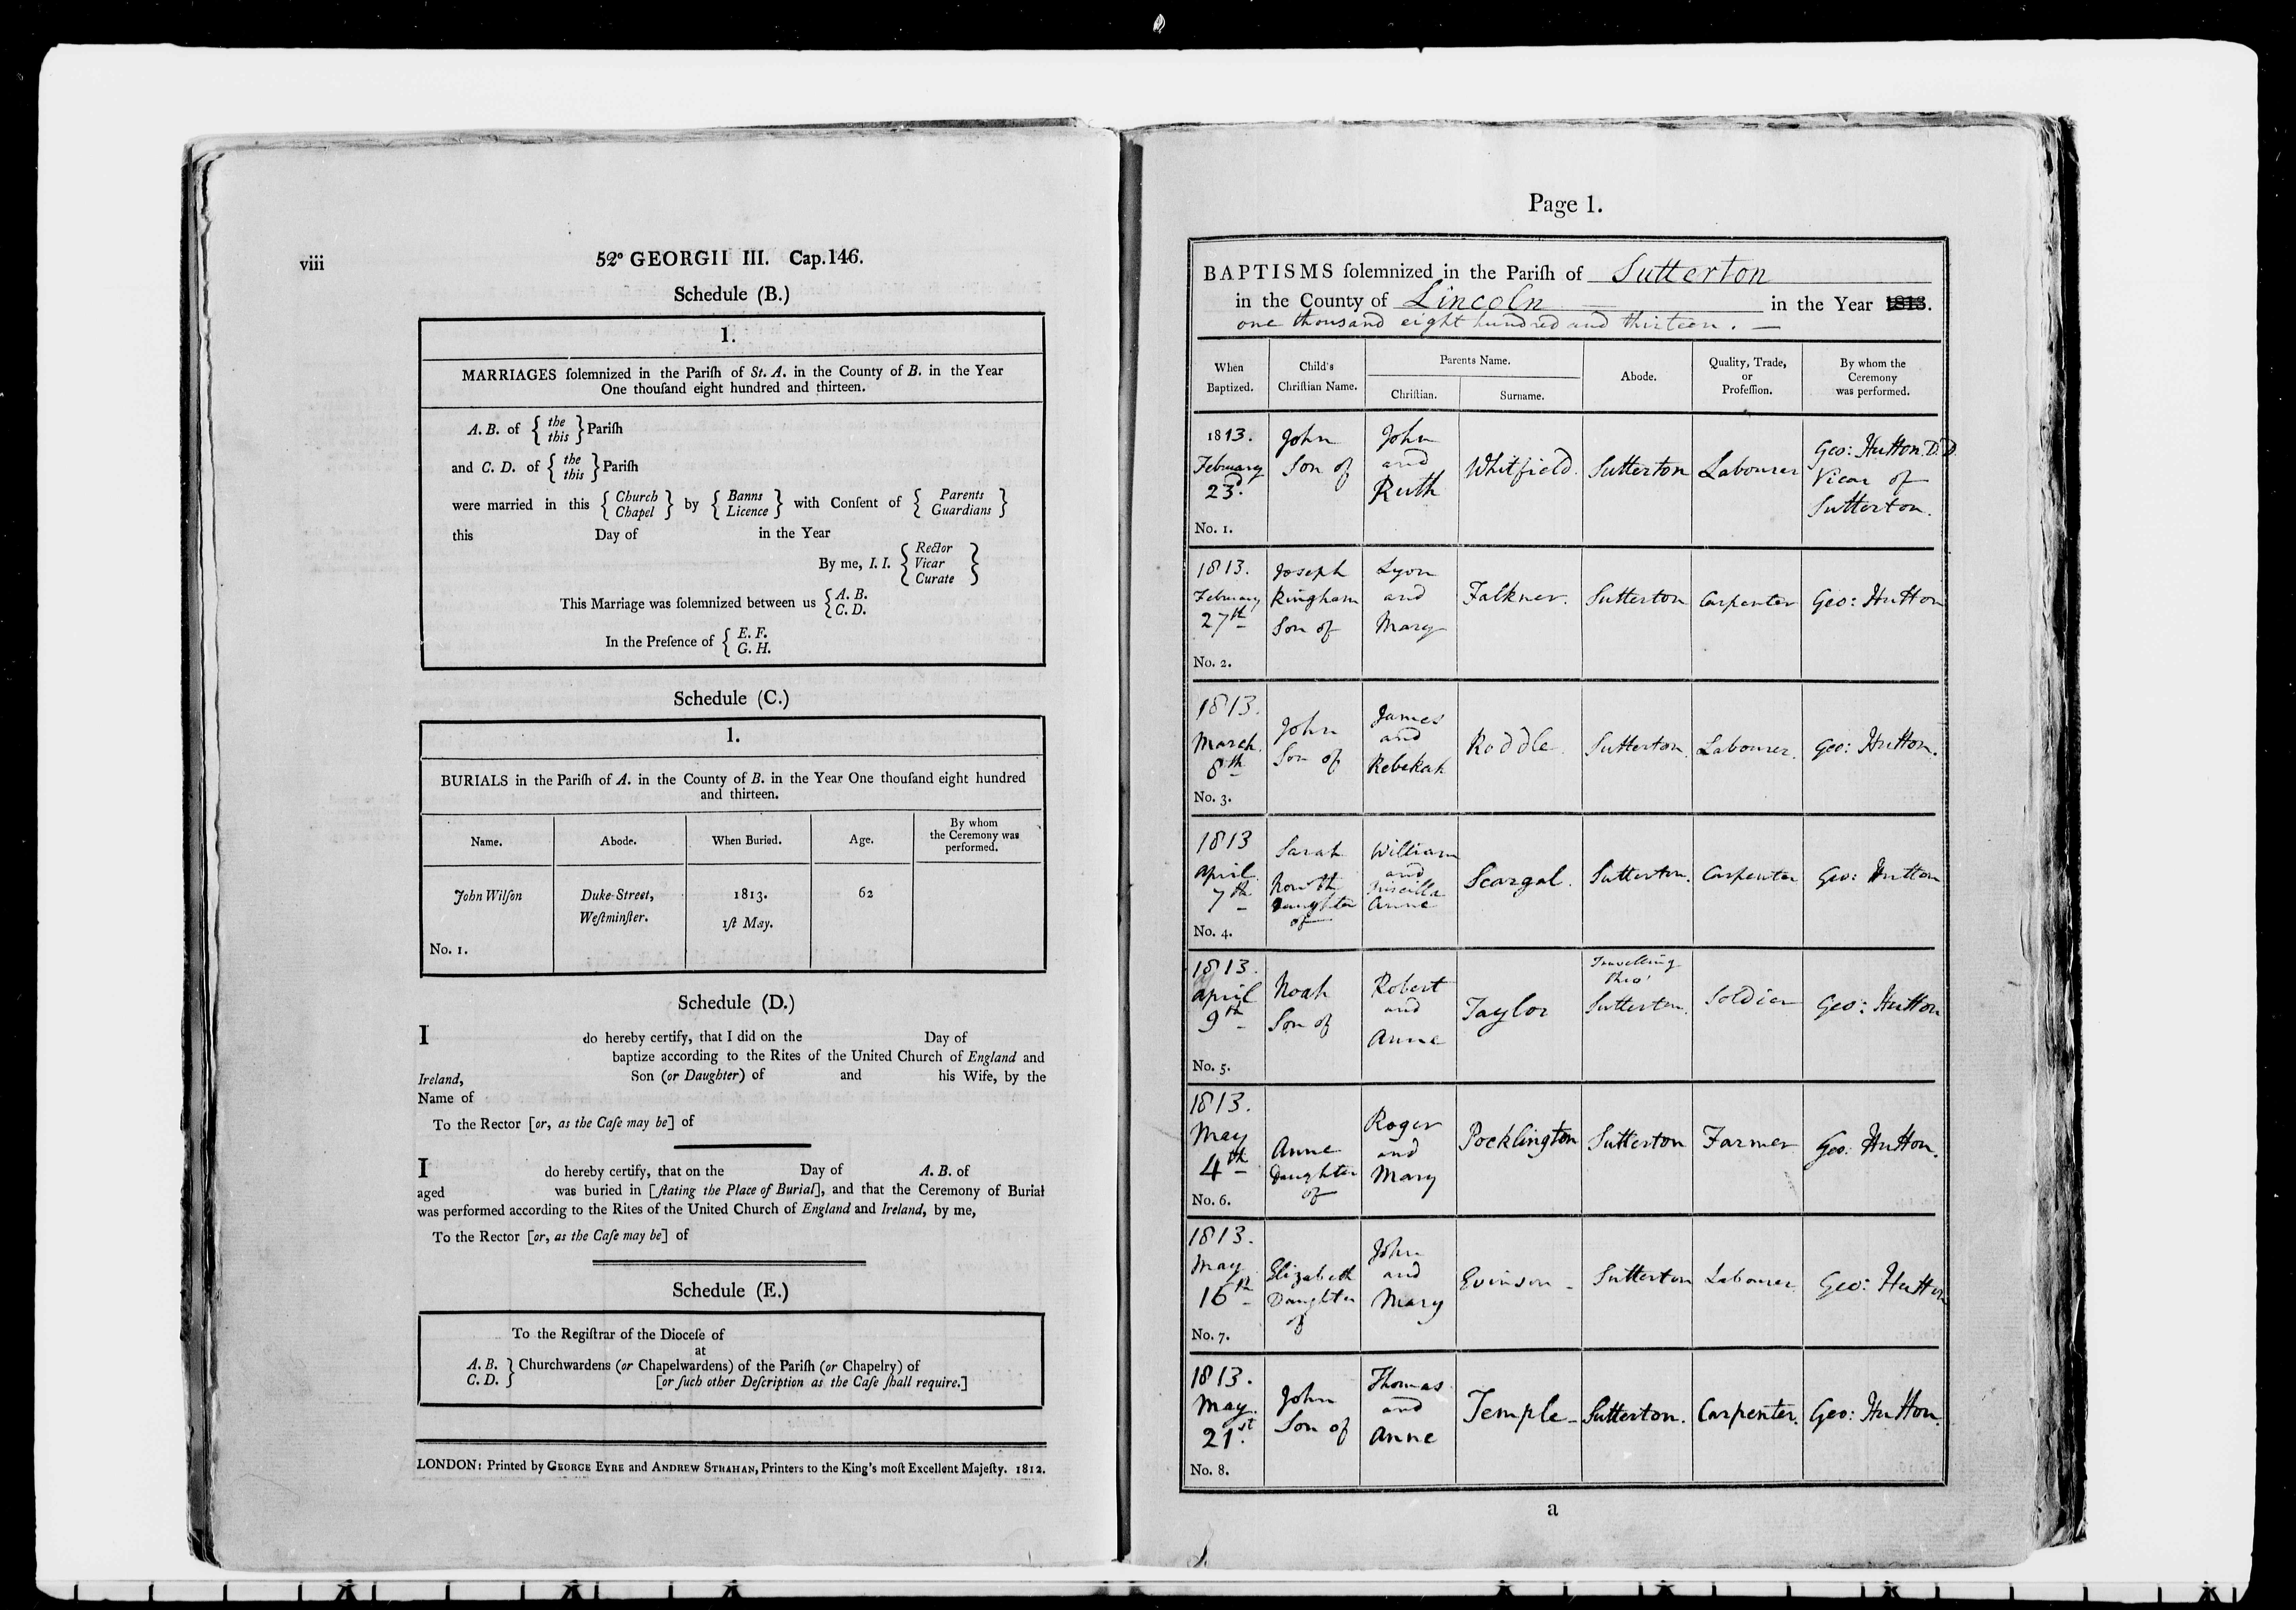 viii
52° GEORGII III. Cap. 146.
Schedule (B.)
1.
MARRIAGES ſolemnized in the Pariſh of St. A. in the County of B. in the Year
One thouſand eight hundred and thirteen.
A. B. of { the this } Pariſh
and C. D. of { the this } Pariſh
were married in this { Church Chapel } by { Banns Licence } with Conſent of { Parents Guardians }
this Day of in the Year
By me, I. I. { Rector Vicar Curate }
This Marriage was ſolemnized between us { A. B. C. D.
In the Preſence of { E. F. G. H.
Schedule (C.)
1.
BURIALS in the Pariſh of A. in the County of B. in the Year One thouſand eight hundred
and thirteen.
Name. Abode. When Buried. Age. By whom the Ceremony was performed.
John Wilſon Duke-Street, 1813. 62
Weſtminſter. 1ſt May.
No. 1.
Schedule (D.)
I do hereby certify, that I did on the Day of
baptize according to the Rites of the United Church of England and
Ireland, Son (or Daughter) of and his Wife, by the
Name of
To the Rector [or, as the Caſe may be] of
I do hereby certify, that on the Day of A. B. of
aged was buried in [ſtating the Place of Burial], and that the Ceremony of Burial
was performed according to the Rites of the United Church of England and Ireland, by me,
To the Rector [or, as the Caſe may be] of
Schedule (E.)
To the Regiſtrar of the Dioceſe of
at
A. B. C. D. } Churchwardens (or Chapelwardens) of the Pariſh (or Chapelry) of
[or ſuch other Deſcription as the Caſe ſhall require.]
LONDON: Printed by GEORGE EYRE and ANDREW STRAHAN, Printers to the King's moſt Excellent Majeſty. 1812.
Page 1.
BAPTISMS ſolemnized in the Pariſh of Sutterton
in the County of Lincoln in the Year 1813.
one thousand eight hundred and thirteen.
When Baptized. Child's Chriſtian Name. Parents Name. Chriſtian. Surname. Abode. Quality, Trade, or Profeſſion. By whom the Ceremony was performed.
1813. February 23d. John Son of John and Ruth Whitfield. Sutterton Labourer Geo: Hutton D.D. Vicar of Sutterton.
No. 1.
1813. February 27th Joseph Kingham Son of Lyon and Mary Falkner. Sutterton Carpenter Geo: Hutton
No. 2.
1813. March 8th John Son of James and Rebekah Roddle. Sutterton. Labourer. Geo: Hutton.
No. 3.
1813 April 7th Sarah Daughter of William and Priscilla Anne Scargal. Sutterton. Carpenter Geo: Hutton
No. 4.
1813. April 9th Noah Son of Robert and Anne Taylor Travelling thro' Sutterton. Soldier Geo: Hutton
No. 5.
1813. May 4th Anne Daughter of Roger and Mary Pocklington Sutterton Farmer Geo: Hutton.
No. 6.
1813. May 16th Elizabeth Daughter of John and Mary Evinson Sutterton Labourer. Geo: Hutton
No. 7.
1813. May 21st. John Son of Thomas and Anne Temple Sutterton. Carpenter. Geo: Hutton.
No. 8.
a